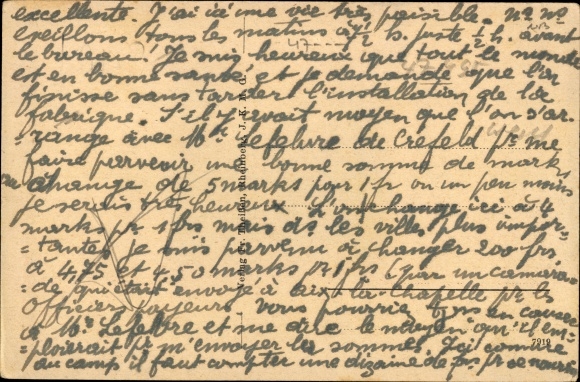 excellente. J'ai ici une vie très paisible. Ns ns
éveillons tous les matins à 7 1/2 h. juste 1/2 h. avant
le bureau. Je suis heureux que tout le monde
est en bonne santé et je demande que l'on
finisse sans tarder l'installation de la
fabrique. S'il y avait moyen que l'on s'ar-
range avec Mr Lefebvre de Créfeld pr me
faire parvenir une bonne somme de marks
change de 5 marks pour 1 fr ou un peu moins
je serais très heureux. L'on change ici à 4
marks pr 1 frs mais ds les villes plus impor-
=tantes, je suis parvenu à changer 200 frs.
à 4,75 et 4,50 marks pr 1 frs (par un camara-
=de qui était envoyé à aix-la-chapelle pr les
officiers payeurs. Vous pourriez en causer
à Mr Lefebvre et me dire le moyen qu'il em-
=ploierait pr m'envoyer les sommes. Ici comme
au camp il faut compter une dizaine de frs pr se nourrir
Verlag Fr. Theissen, Rheinberg
7919